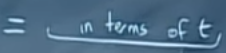 = in terms of t